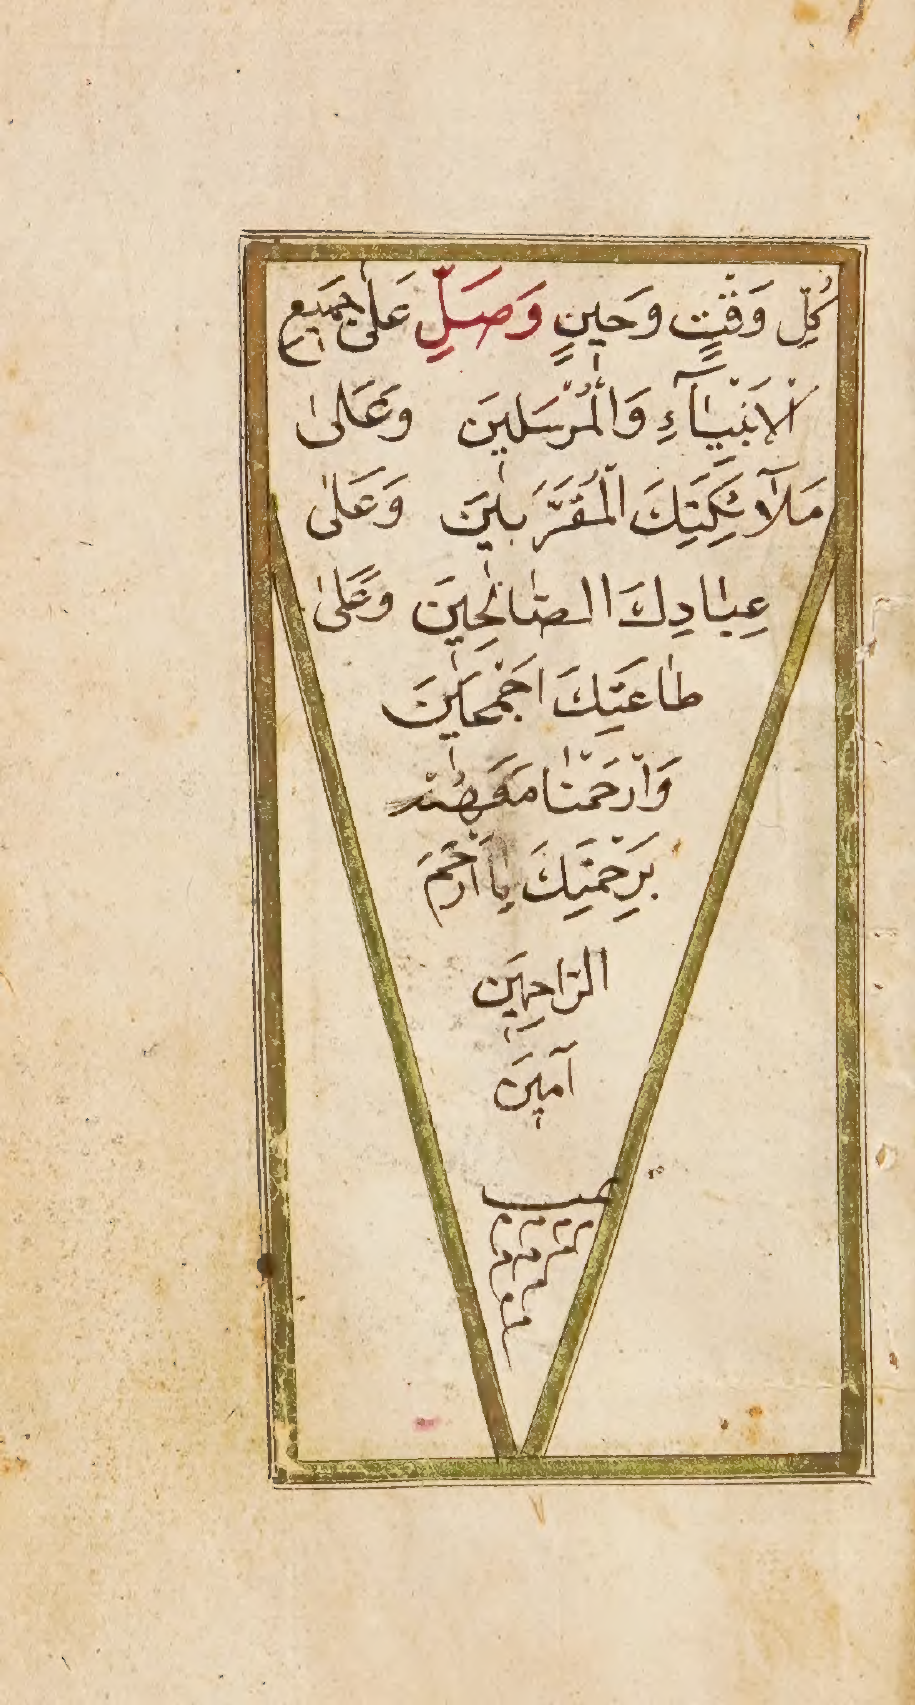 كُلِّ وَقْتٍ وَحِينٍ وَصَلِّ عَلٰى جَمِيعِ
الْاَنْبِيَآءِ وَالْمُرْسَلِينَ وَعَلٰى
مَلَآئِكَتِكَ الْمُقَرَّبِينَ وَعَلٰى
عِبَادِكَ الصَّالِحِينَ وَعَلٰى
طَاعَتِكَ اَجْمَعِينَ
وَارْحَمْنَا مَعَهُمْ
بِرَحْمَتِكَ يَا اَرْحَمَ
الرَّاحِمِينَ
آمِينَ